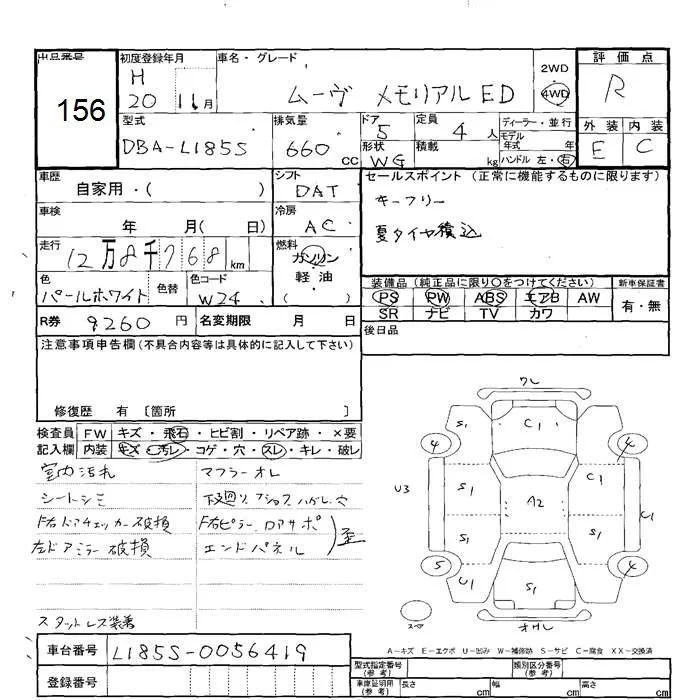 出品番号 初度登録年月 車名・グレード 評価点
156
H 20 11月 ムーヴ メモリアルED 2WD 4WD R
型式 排気量 ドア 定員 ディーラー・並行 外装 内装
DBA-L185S 660 CC 5 4人 モデル年式 年 E C
形状 WG 積載 kg ハンドル 左・右
車歴 自家用・( ) シフト DAT
セールスポイント (正常に機能するものに限ります)
キーフリー
夏タイヤ積込
車検 年 月( 日) 冷房 AC
走行 12万8千768km 燃料 ガソリン
軽油
( )
色 パールホワイト 色替 色コード W24
装備品 (純正品に限り○をつけてください) 新車保証書
PS PW ABS エアB AW 有・無
SR ナビ TV カワ
R券 9260円 名変期限 月 日 後日品
注意事項申告欄 (不具合内容等は具体的に記入して下さい)
修復歴 有 〔箇所 〕
検査員 FW キズ・飛石・ヒビ割・リペア跡・×要
記入欄 内装 キズ・汚レ・コゲ・穴・スレ・キレ・破レ
室内汚れ マフラーオレ
シートシミ 下廻り 穴
F右ドアチェッカー破損 F右ピラー ロアサポ
左ドアミラー破損 エンドパネル 歪
スタットレス装着
ワレ
S1 C1
4 4
U3 S1 A2 C1 U1
S1 S1
5 4
U1 S1
スペ オオレ
A-キズ E-エクボ U-凹み W-補修跡 S-サビ C-腐食 XX-交換済
車台番号 L185S-0056419
登録番号
型式指定番号 (参考) 類別区分番号 (参考)
車庫証明用 (参考) 長さ cm 幅 cm 高さ cm